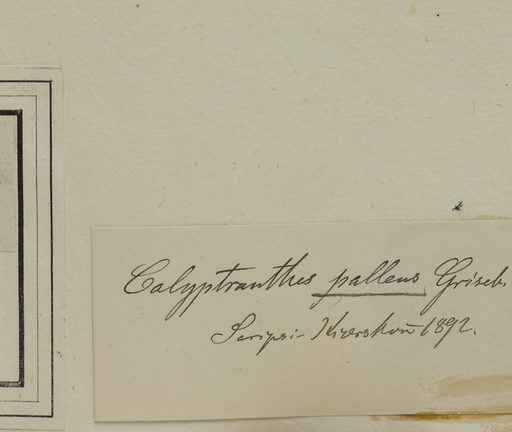 Calyptranthes pallens Griseb.
Scripsi Kiærskou 1892.